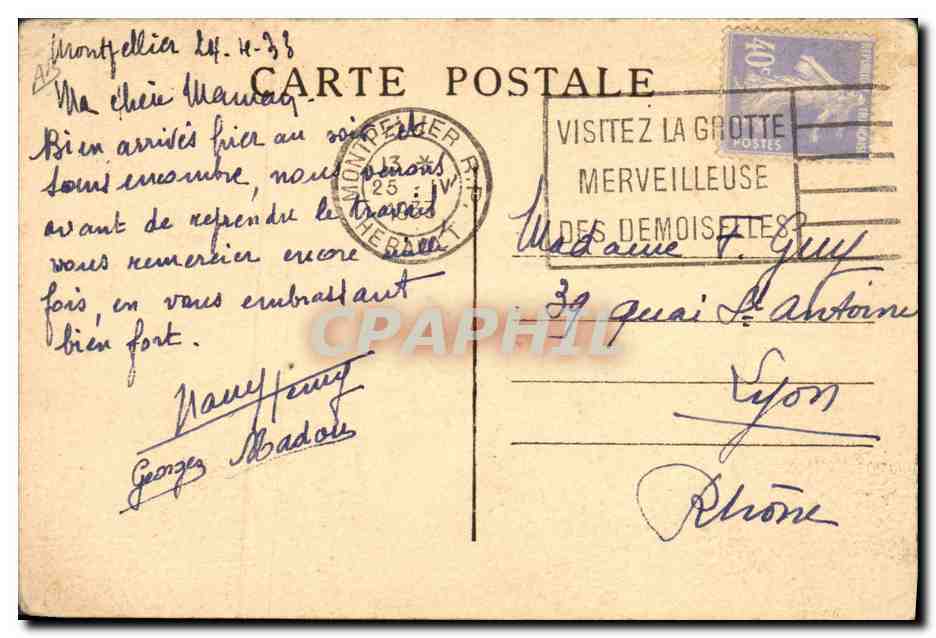 Montpellier 24-4-33
CARTE POSTALE
Ma chère Maman.
Bien arrivés hier au soir et
sans encombre, nous venons
avant de reprendre le travail
vous remercier encore une
fois, en vous embrassant
bien fort.
Georges Madou
MONTPELLIER R.P.
13 *
25 . IV
HERAULT
VISITEZ LA GROTTE
MERVEILLEUSE
DES DEMOISELLES
40c
POSTES
Madame F. Guy
39 quai St Antoine
Lyon
Rhône
CPAPHIL